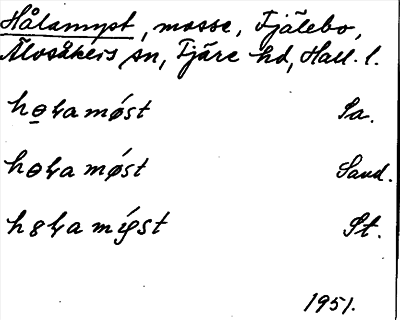 Hålamyst, mosse, Fjälebo,
Älvsåkers sn, Fjäre hd, Hall. l.
hɵ̠ɂamǿst Sa.
hɵɂamǿst Sand.
h8ɂamíyst St.
1951.